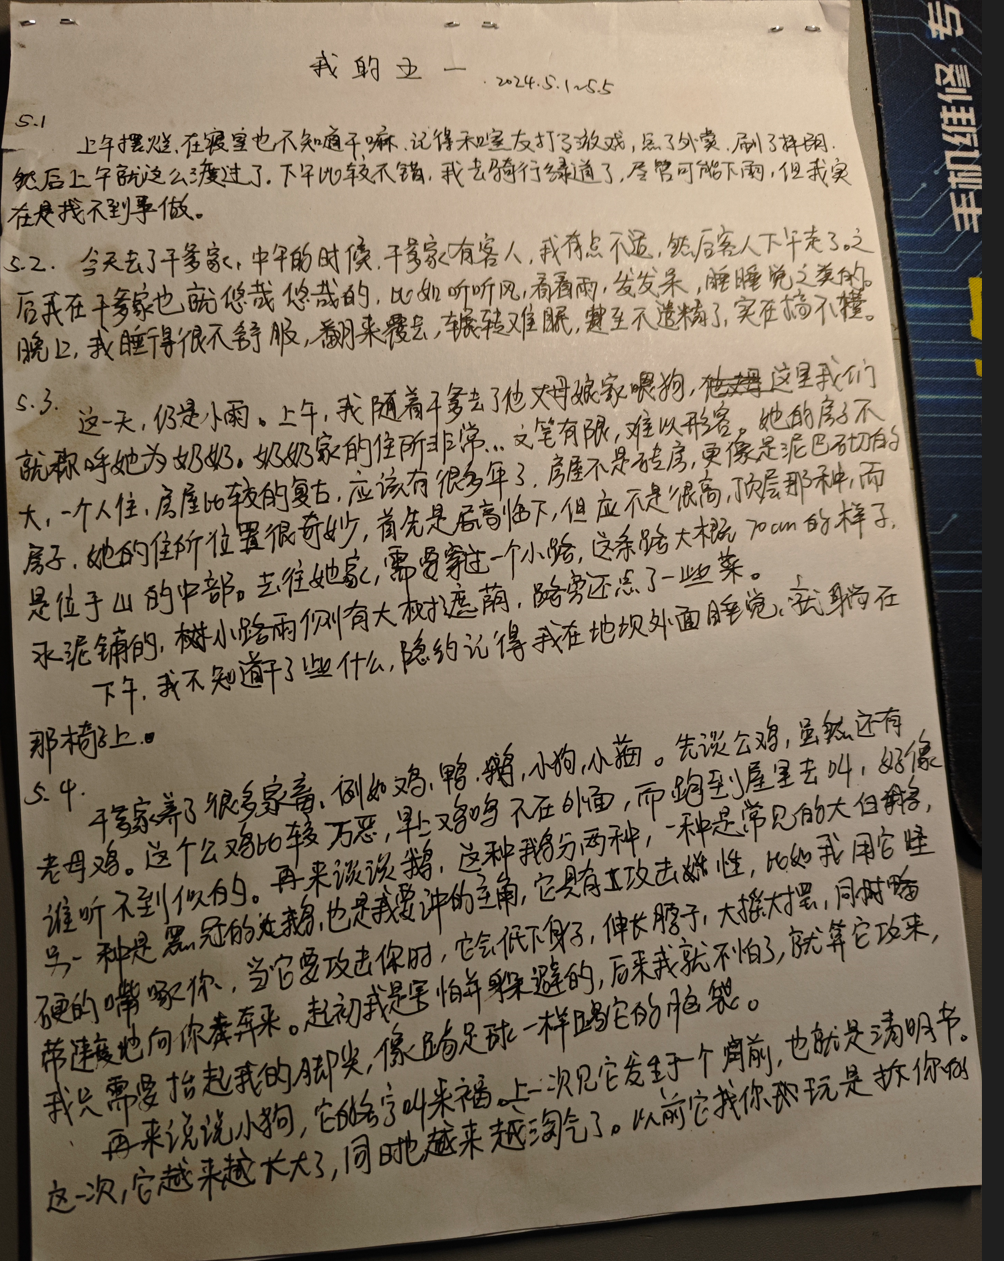 我的五一 2024.5.1~5.5
5.1
上午摆烂,在寝室也不知道干嘛,记得和室友打了游戏,点了外卖,刷了抖阴.
然后上午就这么渡过了.下午比较不错,我去骑行绿道了,尽管可能下雨,但我实
在是找不到事做。
5.2. 今天去了干爹家,中午的时候,干爹家有客人,我有点不适,然后客人下午走了。之
后我在干爹家也就悠哉悠哉的,比如听听风,看看雨,发发呆,睡睡觉之类的。
晚上,我睡得很不舒服,翻来覆去,辗转难眠,甚至不遗精了,实在搞不懂。
5.3. 这一天,仍是小雨。上午,我随着干爹去了他丈母娘家喂狗,这里我们
就称呼她为奶奶。奶奶家的住所非常...文笔有限,难以形容。她的房子不
大,一个人住,房屋比较的复古,应该有很多年了,房屋不是砖房,更像是泥巴砌的
房子.她的住所位置很奇妙,首先是居高临下,但应不是很高,顶层那种,而
是位于山的中部。去往她家,需要穿过一个小路,这条路大概70cm的样子,
水泥铺的,小路两侧有大树遮荫,路旁还点了一些菜。
下午,我不知道干了些什么,隐约记得我在地坝外面睡觉,就躺在
那椅子上.
5.4. 干爹家养了很多家畜,例如鸡,鸭,鹅,小狗,小猫。先谈公鸡,虽然还有
老母鸡。这个公鸡比较万恶,早上鸡鸣不在外面,而跑到屋里去叫,好像
谁听不到似的。再来谈谈鹅,这种鹅分两种,一种是常见的大白鹅,
另一种是黑冠的鹅,也是我要讲的主角,它具有攻击性,比如我用它坚
硬的嘴啄你,当它要攻击你时,它会低下身子,伸长脖子,大摇大摆,同时略
带速度地向你奔来。起初我是害怕并躲避的,后来我就不怕了,就算它攻来,
我只需要抬起我的脚尖,像踢足球一样踢它的脑袋。
再来说说小狗,它的名字叫来福。上一次见它发生于一个月前,也就是清明节。
这一次,它越来越长大了,同时也越来越淘气了。以前它找你玩是扒你